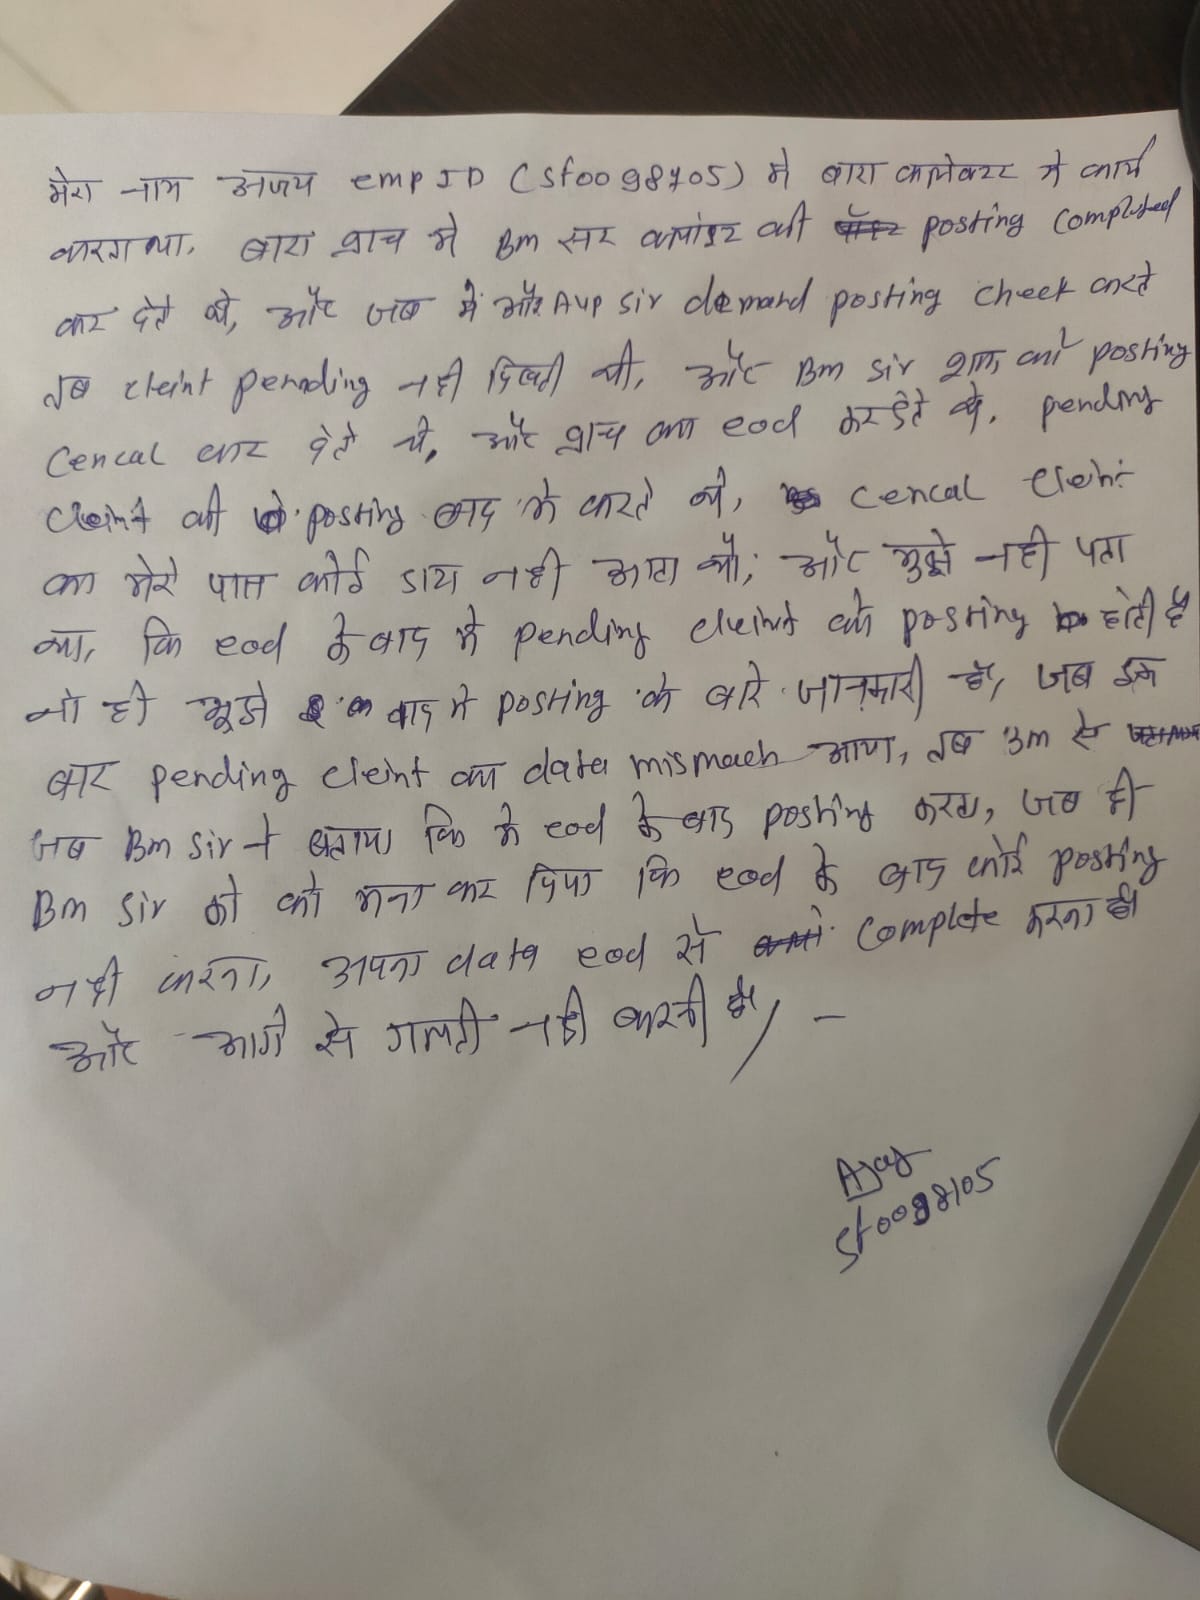 मेरा नाम अजय emp ID (Sf0098705) मे बारा कलेक्टर मे कार्य
करता था, बारा ब्राच मे Bm सर क्लांइट की posting completed
कर देते थे, और जब मे और AVP Sir demand posting check करते
तब cleint pending नही दिखती थी, और Bm Sir शाम को posting
Cencal कर देते थे, और ब्राच का eod कर देते थे, pending
cleint की posting बाद मे करते थे, cencal cleint
का मेरे पास कोई डाटा नही आता था, और मुझे नही पता
था, कि eod के बाद मे pending cleint की posting होती है
ना ही मुझे बाद मे posting के बारे जानकारी है, जब इस
बार pending cleint का data mismach आया, तब Bm से
जब Bm sir ने बताया कि मे eod के बाद posting करता, जब ही
Bm sir को को मना कर दिया कि eod के बाद कोई posting
नही करना, अपना data eod से complete करना है
और आगे से गलती नही करनी है/ —
Ajay
Sf0098105